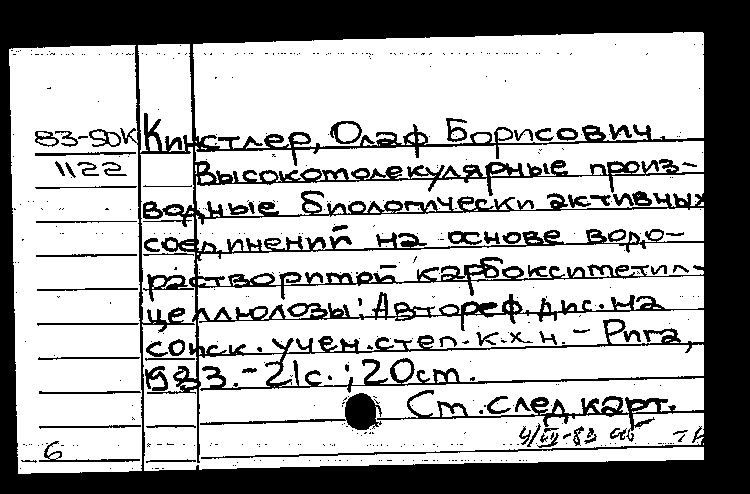 83-90К Кинстлер, Олаф Борисович.
1122 Высокомолекулярные произ-
водные биологически активных
соединений на основе водо-
растворимой карбоксиметил-
целлюлозы: Автореф. дис. на
соиск. учен. степ. к.х.н. - Рига,
1983. - 21с.; 20см.
См. след. карт.
6